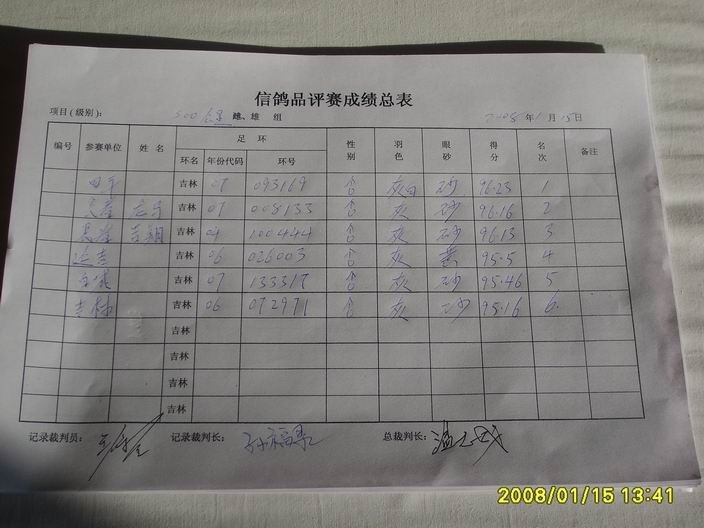 信鸽品评赛成绩总表
项目(级别): 500公里 雌、雄 组 2008年1月15日
编号 参赛单位 姓名 足环 性别 羽色 眼砂 得分 名次 备注
环名 年份代码 环号
四平 吉林 07 093169 ♂ 灰白 砂 96.23 1
吉林 07 008133 ♂ 灰 砂 96.16 2
吉林 04 100444 ♂ 灰 砂 96.13 3
延吉 吉林 06 026003 ♂ 灰 黄 95.5 4
吉林 07 133317 ♂ 灰 砂 95.46 5
吉林 吉林 06 072971 ♂ 灰 砂 95.16 6
吉林
吉林
吉林
吉林
记录裁判员: 记录裁判长: 孙福 总裁判长: 温
2008/01/15 13:41